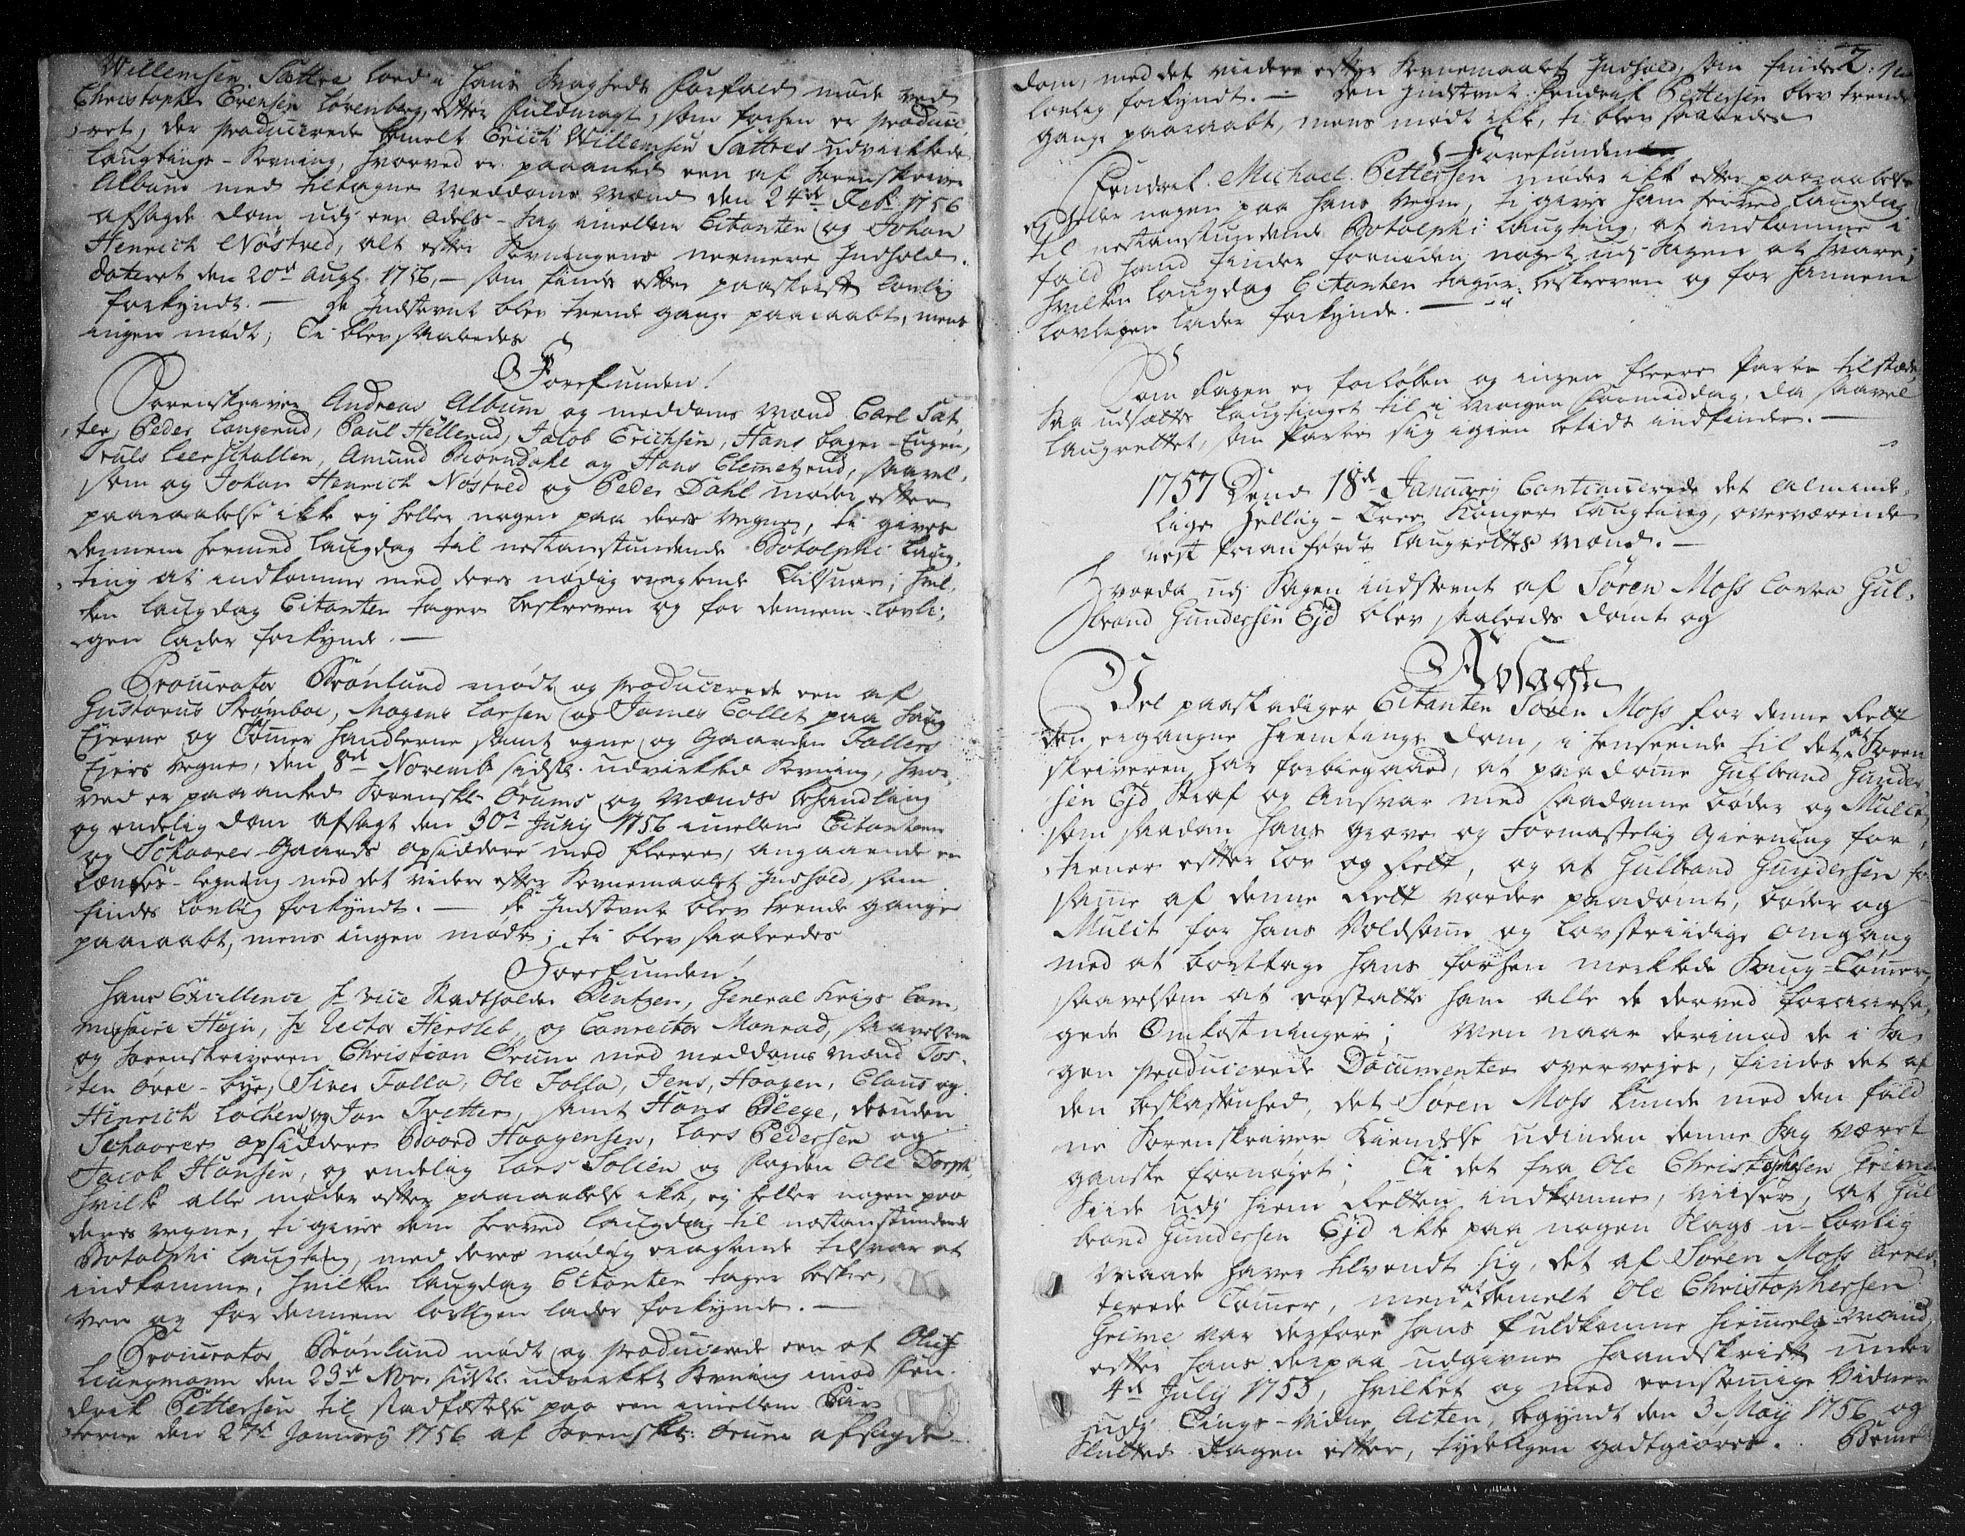 Willemsen Sættre lod i hans Svagheds forfald møde ved
Christopher Evensen Lövenberg, efter fuldmagt, som forhen er produce-
ret, der producerede bemelt Erich Willemsen Sættres udvirkede
Laugtings-Stevning, hvorved er paaanked een af Sorenskriver
Album med tiltagne meddoms Mænd den 24de Feb: 1756
afsagde Dom udj een Odels-Sag imellem Citanten og Johan
Henrich Nöstved, alt efter Stevningens nermere Indhold
dateret den 20de Augt. 1756, som findes efter paaskrift lovlig
forkyndt. — De Indstevnte blev trende gange paaraabt, mens
ingen mødt; Ti blev saaledes
Forefunden!
Sorenskriver Andreas Album og meddoms Mænd Carl Sæt-
ter, Peder Langerud, Paul Hellerud, Jacob Erichsen, Hans Bager-Engen,
Truls Leerskallen, Amund Thorndahl og Hans Clemetzrud, saavel-
som og Johan Henrich Nöstved og Peder Dahl møder efter
paaraabelse ikke ej heller nogen paa deres vegne, ti gives
dennem hermed Laugdag til nestanstundende Botolphi Laug-
ting at indkomme med deres nødig eragtende Tilsvar; hvil-
ken Laugdag Citanten tager beskreven og for dennem lovli-
gen lader forkynde. —
Procurator Brönlund mødte og producerede een af
Gustavus Stromboe, Mogens Larsen og James Collet paa Saug
Ejerne og Tømmer Handlerne samt egne og Gaarden Tollers
Ejers vegne, den 8de Novemb. sidstl. udvirkede Stevning, hvor-
ved er paaanked Sorenskr. Örums og Mænds behandling
og endelig Dom afsagt den 30te July 1756 imellem Citanterne
og Schaarer-Gaards Opsiddere med fleere, angaaende en
Lændse-legning med det videre efter Stevnemaalets Indhold, som
findes lovlig forkyndt. — De Indstevnte blev trende gange
paaraabt, mens ingen mødte; ti blev saaledes
Forefunden!
Hans Excellence Hr. Vice Stadtholder Bentzen, General Krigs Com-
missaire Hejn, Hr. Rector Hersleb, og Conrector Monrad, saavelsom
og Sorenskriveren Christian Örum med meddoms mænd Tos-
ten Övre-bye, Siver Folla, Ole Folla, Jens, Haagen, Claus og
Hinrich Lochen og Jan Tvetter, samt Hans Beege, desuden
Schaarer Opsiddere Baard Haagensen, Lars Pedersen og
Jacob Hansen, og endelig Lars Solien og Fogden Ole Dorph,
hvilke alle møder efter paaraabelse ikke, ej heller nogen paa
deres vegne; ti gives dem herved Laugdag til næstanstundende
Botolphi Laugting, med deres nødig eragtende tilsvar at
indkomme, hvilken Laugdag Citanten tager beskre-
ven og for dennem lovligen lader forkynde. —
Procurator Brönlund mødt og producerede een af Oluf
Laugmann den 23de Nov. sidstl. udvirket Stevning imod Hen-
drick Pettersen til stadfæstelse paa een imellem Par-
terne den 27de January 1756 af Sorenskr: Örum afsagde
2.
Dom, med det videre efter Stevnemaalets Indhold, som findes
lovlig forkyndt. — Den Indstevnte Hendrick Pettersen blev trende
gange paaraabt, mens mødt ikke, ti blev saaledes
Forefunden
Hendrik Michael Pettersen møder ikke efter paaraabelse
ej heller nogen paa hans vegne, ti gives ham herved Laugdag
til nestanstundende Botolphi Laugting, at indkomme i
fald hand finder fornøden noget udj Sagen at svare;
hvilken Laugdag Citanten tager beskreven og for hannem
lovligen lader forkynde. —
Som Dagen er forløben og ingen fleere Parter tilstæde,
saa udsættes Laugtinget til i Morgen formiddag, da saavel
Laugrettet, som Parter sig igien betids indfinder. —
1757 Dend 18de January Continuerede det alminde-
lige Hellig-Tree Konger Laugting, overværende
nest foranførde Laugrettes Mænd. —
Hvorda udj Sagen indstevnt af Sören Moss Contra Gul-
brand Gundersen Ejd blev saaledes dømt og
Afsagt
Vel paaskadiger Citanten Sören Moss for denne Rett
den ergangne Hiemtings Dom, i henseende til det at Soren-
skriveren har forbiegaaed, at paadømme Gulbrand Gunder-
sen Ejd straf og Ansvar med saadanne Bøder og Mulct,
som saadan hans Grove og Formastelig Gierning for-
tiener efter Lov og Rett, og at Gulbrand Gundersen
samme af denne Rett vorder paadømt, Bøder og
Mulct for hans Voldsomme og Lovstriidige omgang
med at borttage hans forhen merkede Saug-Tømmer,
saavelsom at erstatte ham alle de derved foraarsa-
gede Omkostninger; Men naar derimod de i Sa-
gen producerede Documenter overvejes, findes det af
den beskaffenhed, det Sören Moss kunde med den fald-
ne Sorenskriver Kiendelse udinden denne Sag været
ganske fornøjet; Ti det fra Ole Christophersen Grime
Siide udj Hiem Retten indkomne, viiser, at Gul-
brand Gundersen Ejd ikke paa nogen Slags u-lovlig
Maade haver tilvendt sig, det af Sören Moss Arres-
terede Tømmer, men at bemelt Ole Christophersen
Grime var derfore hans fuldkomne Hiemmels-mand,
efter hans derpaa udgivne Haandskrift under
4de July 1755, hvilket og med eenstemmige Vidner
udj Tings-Vidne Acten, begyndt den 3 May 1756 og
sluttet Dagen efter, tydeligen godtgiøres. Beme-